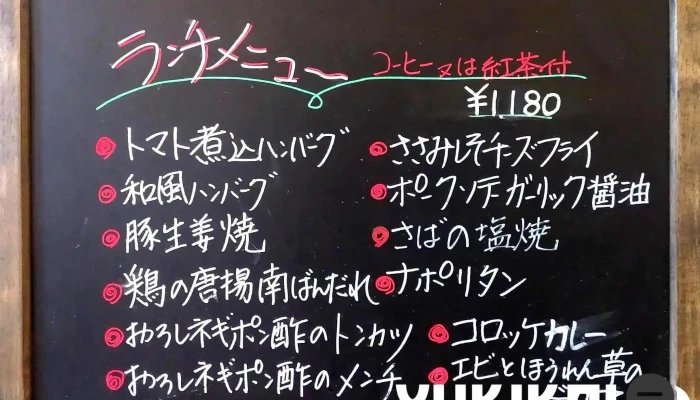 ランチメニュー
コーヒー又は紅茶付
¥1,180
トマト煮込ハンバーグ
和風ハンバーグ
豚生姜焼
鶏の唐揚南ばんだれ
おろしネギポン酢のトンカツ
おろしネギポン酢のメンチ
ささみしそチーズフライ
ポークソテーガーリック醤油
さばの塩焼
ナポリタン
コロッケカレー
エビとほうれん草の